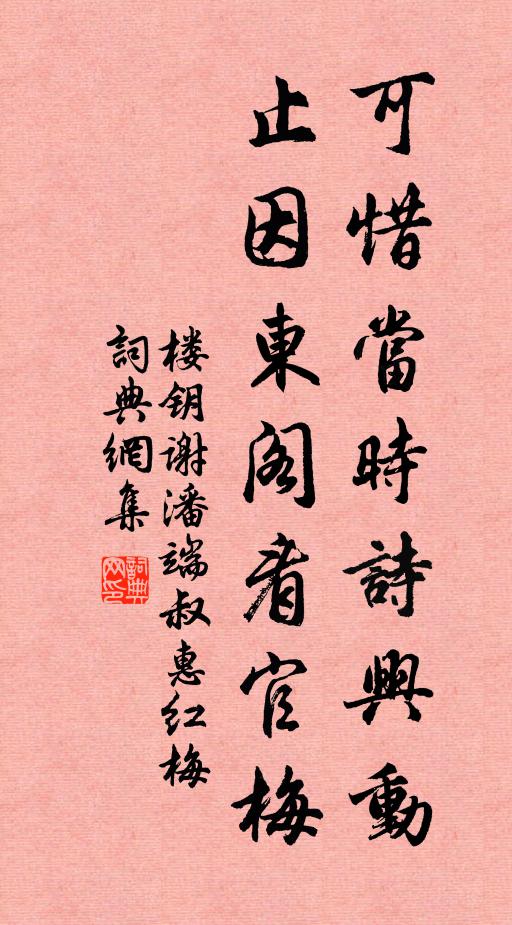 可惜當時詩興動
止因東阁看官梅
楼钥谢潘端叔惠红梅
詞典網集
詞典网印